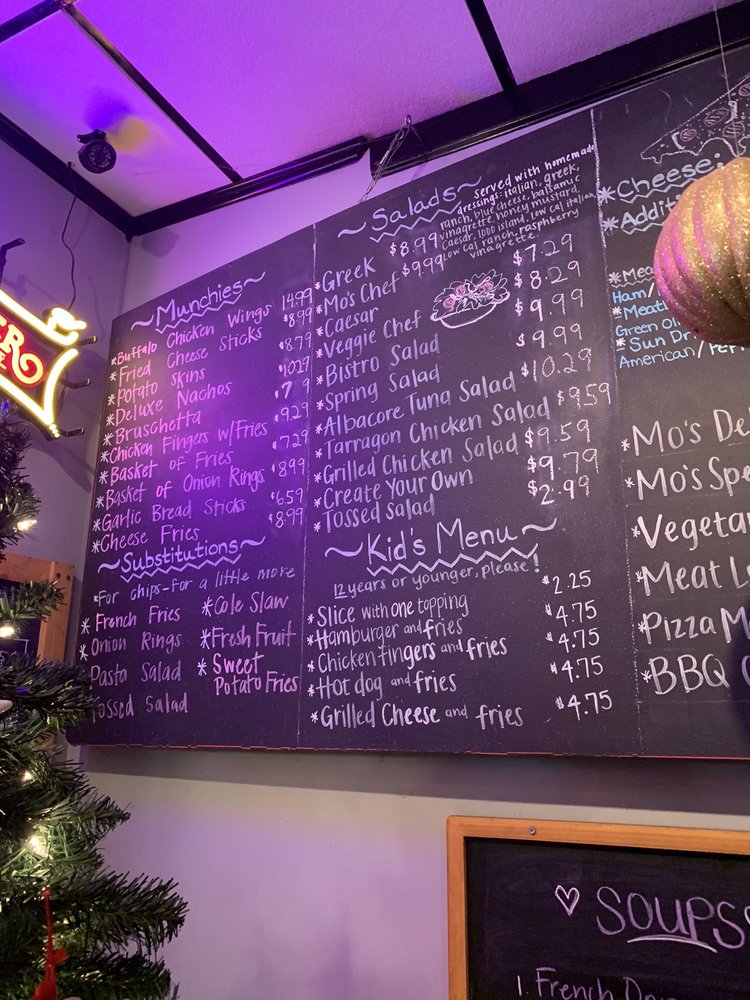 ~Munchies~
*Buffalo Chicken Wings 14.99
*Fried Cheese Sticks $8.99
*Potato Skins $8.79
*Deluxe Nachos 10.29
*Bruschetta
*Chicken Fingers w/Fries $9.29
*Basket of Fries $7.29
*Basket of Onion Rings $8.99
*Garlic Bread Sticks $6.59
*Cheese Fries $8.99
~Substitutions~
*For chips-for a little more
*French Fries
*Onion Rings
Pasta Salad
Tossed Salad
*Cole Slaw
*Fresh Fruit
*Sweet
Potato Fries
~Salads~
served with homemade
dressings: italian, greek,
ranch, blue cheese, balsamic
vinagrette, honey mustard,
Caesar, 1000 island, low cal italian,
low cal ranch, raspberry
vinegrette.
*Greek $8.99
*Mo's Chef $9.99
*Caesar $7.29
*Veggie Chef $8.29
*Bistro Salad $9.99
*Spring Salad $9.99
*Albacore Tuna Salad $10.29
*Tarragon Chicken Salad $9.59
*Grilled Chicken Salad $9.59
*Create Your Own $9.79
*Tossed Salad $2.99
~Kid's Menu~
12 years or younger, please!
*Slice with one topping $2.25
*Hamburger and fries $4.75
*Chicken fingers and fries $4.75
*Hot dog and fries $4.75
*Grilled Cheese and fries $4.75
*Cheese:
*Additi
*Mea
Ham/
*Meatb
Green Oli
*Sun Dr
American/
*Mo's De
*Mo's Spe
*Vegetar
*Meat L
*Pizza M
*BBQ
♡ SOUPS
1. French